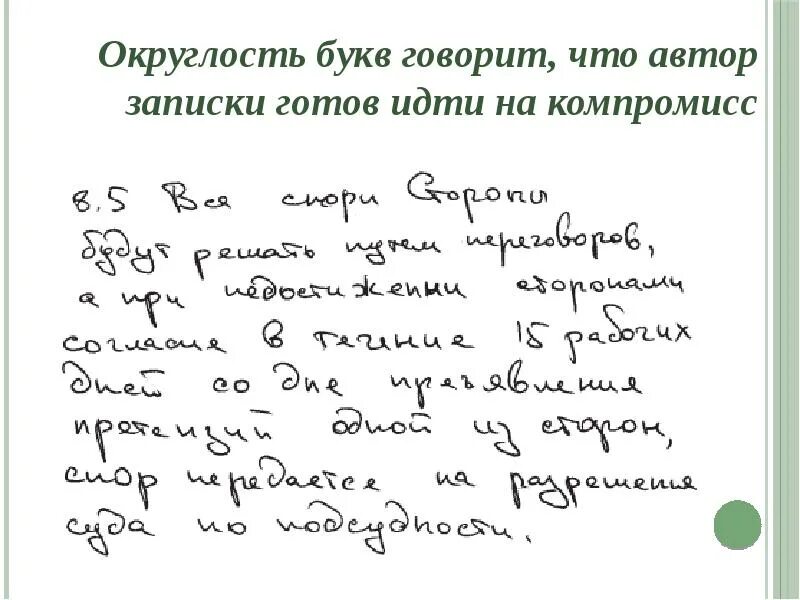 Округлость букв говорит, что автор
записки готов идти на компромисс
8.5 Все споры Стороны
будут решать путем переговоров,
а при недостижении сторонами
согласие в течение 15 рабочих
дней со дне предъявления
претензий одной из сторон,
спор передается на разрешение
суда по подсудности.